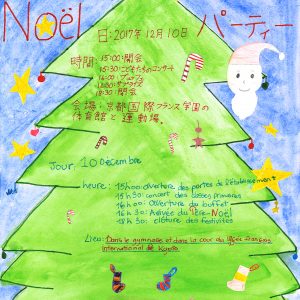 Noël パーティー
日:2017年12月10日
時間:15:00:開会
15:30:こどもたちのコンサート
16:00:ブュッフェ
16:30:サプライズ
18:30:閉会
会場:京都国際フランス学園の
体育館と運動場。
Jour: 10 Décembre
heure: 15h00: ouverture des portes de l'établissement
15h30: concert des classes primaires
16h00: Ouverture du buffet
16h30: Arrivée du Père-Noël
18h30: clôture des festivités
Lieu: Dans le gymnase et dans la cour du lycée français
International de Kyoto.